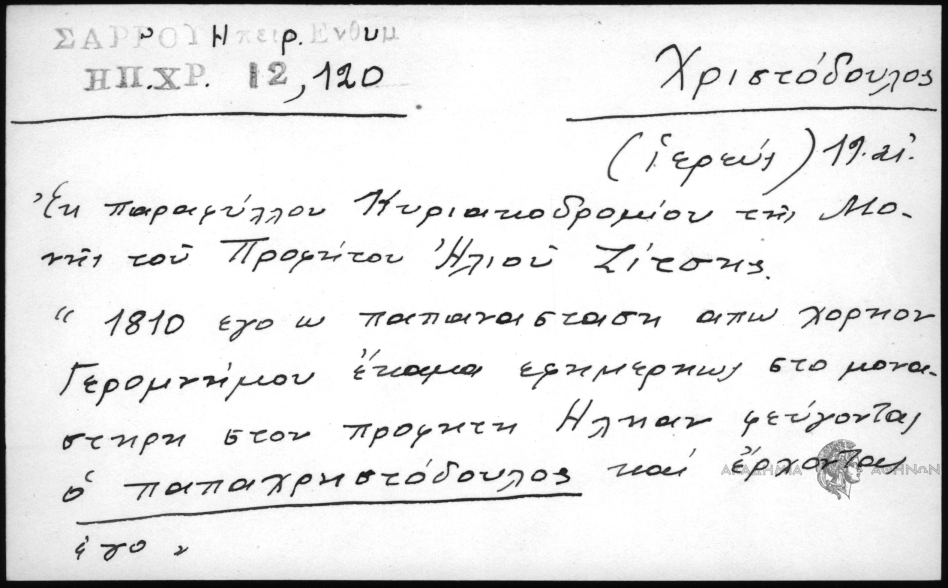 ΣΑΡΡΟΥ Ηπειρ. Ενθυμ
ΗΠ.ΧΡ. 12, 120
Χριστόδουλος
(ἱερεύς) 19. αἰ.
Ἐκ παραφύλλου Κυριακοδρομίου τῆς Μο-
νῆς τοῦ Προφήτου Ἠλιοῦ Ζίτσης.
“ 1810 εγο ω παπαναστασι απω χορηον
Γερομνήμου ἔκαμα εφημερηως στο μονα-
στηρη στον προφητη Ηληαν φεύγοντας
ὁ παπαχρηστόδουλος καί ἔρχονται
ἐγο „
ΑΚΑΔΗΜΙΑ ΑΘΗΝΩΝ